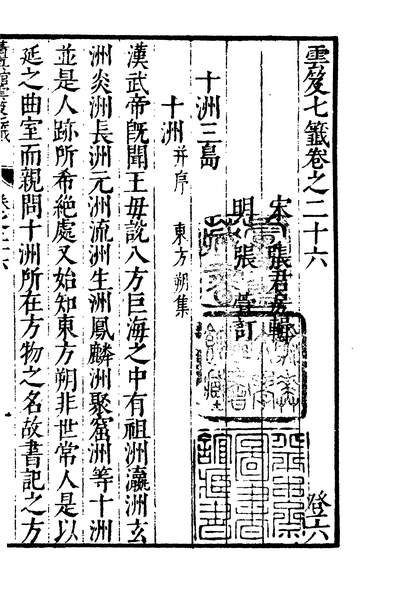 雲笈七籤卷之二十六 登六
宋 張君房輯
明 張 萱訂
十洲三島
十洲 并序 東方朔集
漢武帝既聞王母說八方巨海之中有祖洲瀛洲玄
洲炎洲長洲元洲流洲生洲鳳麟洲聚窟洲等十洲
並是人跡所希絶處又始知東方朔非世常人是以
延之曲室而親問十洲所在方物之名故書記之方